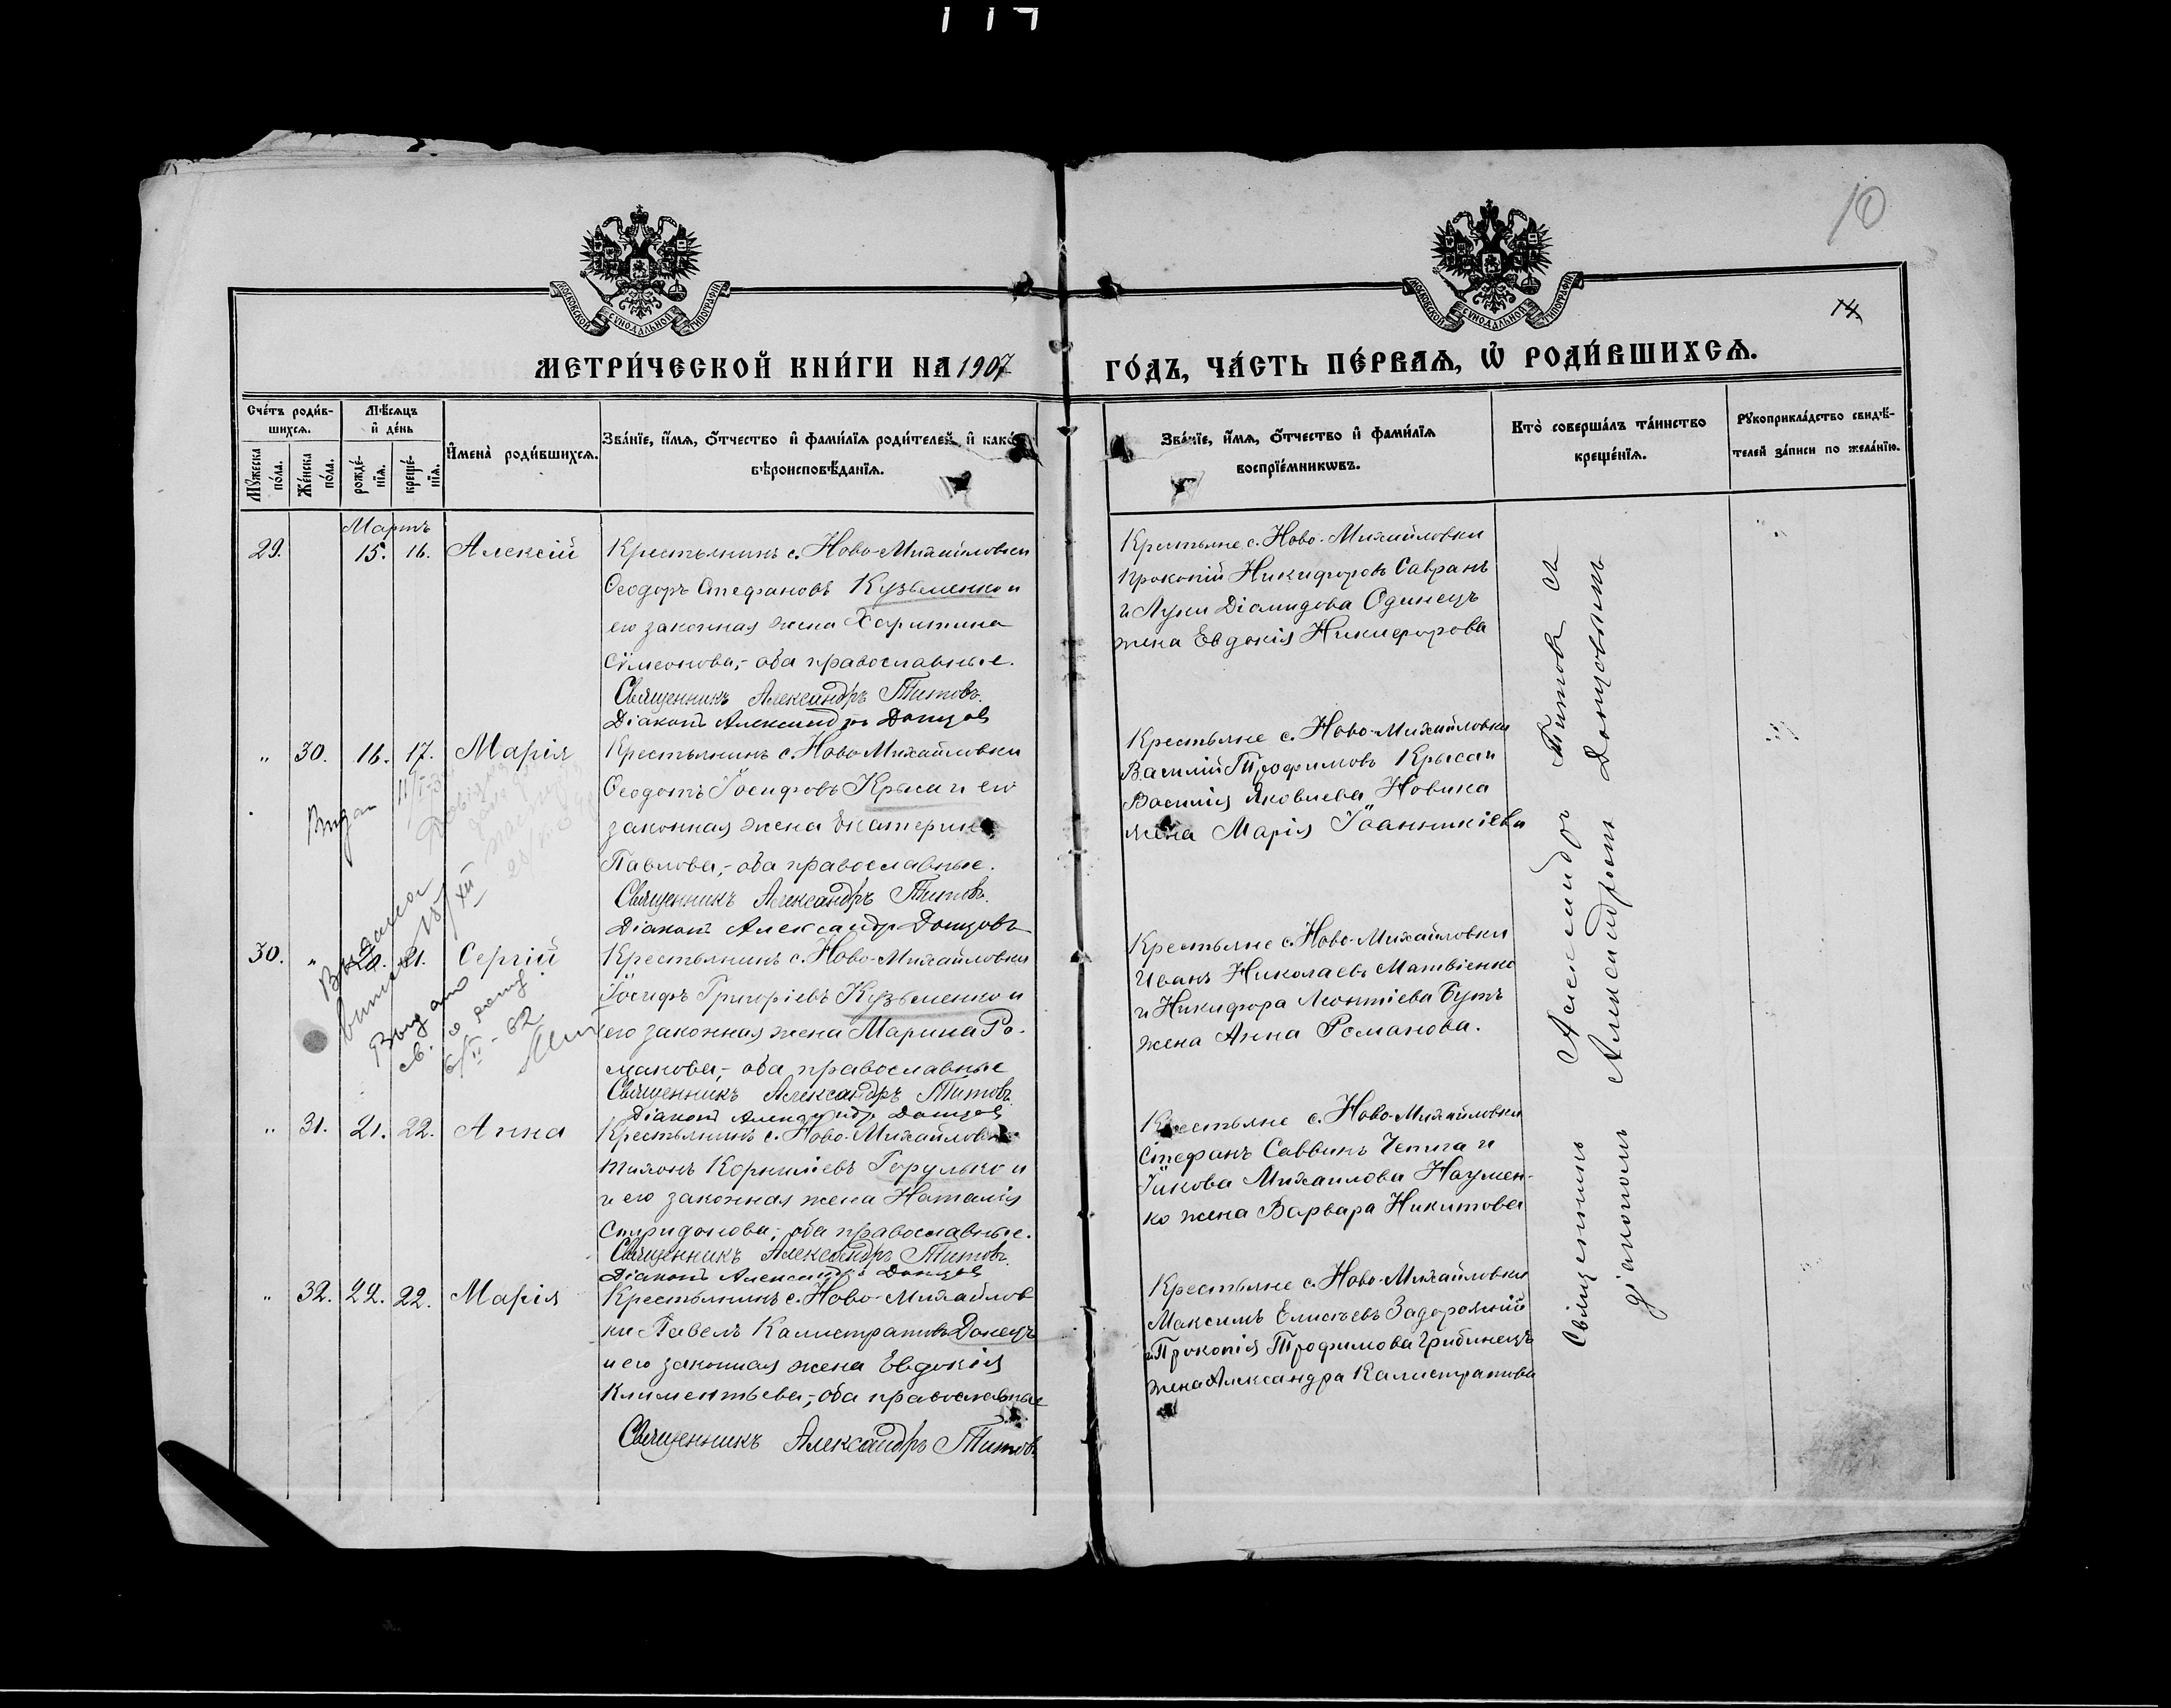 10
14.
МОСКОВСКОЙ СѴНОДАЛЬНОЙ ТИПОГРАФІИ
МОСКОВСКОЙ СѴНОДАЛЬНОЙ ТИПОГРАФІИ
МЕТРИ́ЧЕСКОЙ КНИ́ГИ НА 1907
ГО́ДЪ, ЧА́СТЬ ПЕ́РВАѦ, Ѡ҆ РОДИ́ВШИХСѦ.
Сче́тъ роди́в-
шихсѧ.
Мѣ́сѧцъ
и҆ де́нь
Мꙋ́жеска
по́ла.
Же́нска
по́ла.
рожде́-
нїѧ.
креще́-
нїѧ.
И҆мена̀ роди́вшихсѧ.
Зва́нїе, и҆́мѧ, ѻ҆́тчество и҆ фами́лїѧ роди́телей, и҆ како́
вѣроисповѣ́данїѧ.
Зва́нїе, и҆́мѧ, ѻ҆́тчество и҆ фами́лїѧ
воспрїе́мникѡвъ.
Кто̀ соверша́лъ та́инство
креще́нїѧ.
Рꙋкоприкла́дство свидѣ́-
телей за́писи по жела́нїю.
Мартъ
29. 15. 16. Алексій
Крестьянинъ с. Ново-Михайловки
Ѳеодоръ Стефановъ Кузьменко и
его законная жена Харитина
Сѵмеонова,- оба православные.
Священникъ Александръ Титовъ.
Діаконъ Александръ Донцовъ
Крестьяне с. Ново-Михайловки
Прокопій Никифоровъ Савранъ
и Луки Діомидова Одинецъ
жена Евдокія Никифорова
" 30. 16. 17. Марія
Крестьянинъ с. Ново-Михайловки
Ѳеодотъ Іосифовъ Крыса и его
законная жена Екатерина
Павлова,- оба православные.
Священникъ Александръ Титовъ.
Діаконъ Александръ Донцовъ
Крестьяне с. Ново-Михайловки
Василій Трофимовъ Крыса и
Василія Яковлева Новика
жена Марія Іоанникіева
30. " 20. 21. Сергій
Крестьянинъ с. Ново-Михайловки
Іосифъ Григоріевъ Кузьменко и
его законная жена Марина Ро-
манова,- оба православные
Священникъ Александръ Титовъ.
Діаконъ Александръ Донцовъ
Крестьяне с. Ново-Михайловки
Иванъ Николаевъ Матвіенко
и Никифора Леонтіева Бутъ
жена Анна Романова.
" 31. 21. 22. Анна
Крестьянинъ с. Ново-Михайловки
Тихонъ Корниліевъ Горулько и
и его законная жена Наталія
Спиридонова,- оба православные.
Священникъ Александръ Титовъ.
Діаконъ Александръ Донцовъ
Крестьяне с. Ново-Михайловки
Стефанъ Саввинъ Чепига и
Іакова Михаилова Наумен-
ко жена Варвара Никитова
" 32. 22. 22. Марія
Крестьянинъ с. Ново-Михайлов
ки Павелъ Калистратовъ Донецъ
и его законная жена Евдокія
Климентьева,- оба православные
Священникъ Александръ Титовъ
Крестьяне с. Ново-Михайловки
Максимъ Елисѣевъ Задорожній
и Прокопія Трофимова Грибинецъ
жена Александра Калистратова
Священникъ Александръ Титовъ съ
діакономъ Александромъ Донцовымъ
Выдан
Выдано
6/II-62